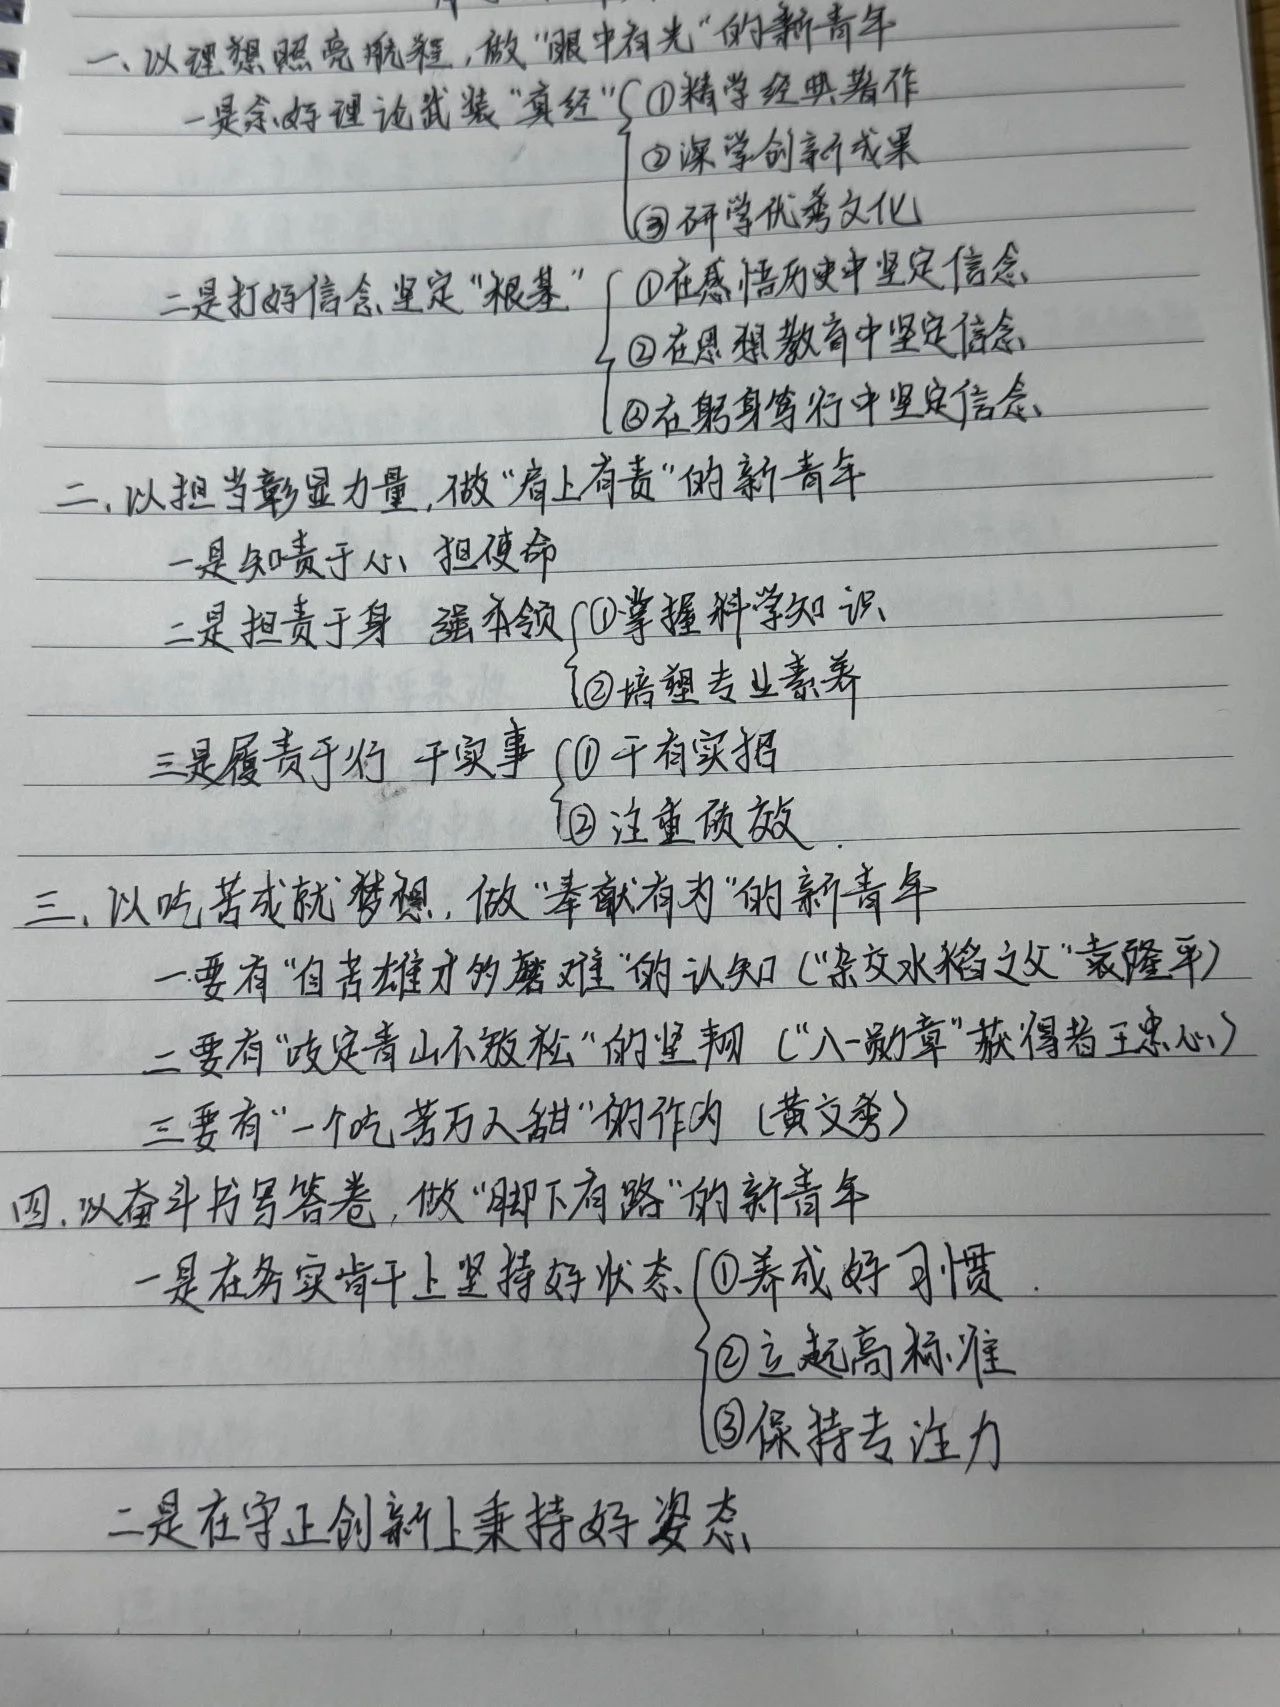 一、以理想照亮航程，做“眼中有光”的新青年
一是念好理论武装“真经” ①精学经典著作
②深学创新成果
③研学优秀文化
二是打好信念坚定“根基” ①在感悟历史中坚定信念
②在思想教育中坚定信念
③在躬身笃行中坚定信念
二、以担当彰显力量，做“肩上有责”的新青年
一是知责于心 担使命
二是担责于身 强本领 ①掌握科学知识
②培塑专业素养
三是履责于行 干实事 ①干有实招
②注重质效
三、以吃苦成就梦想，做“奉献有为”的新青年
一要有“自古雄才多磨难”的认知（“杂交水稻之父”袁隆平）
二要有“咬定青山不放松”的坚韧（“八一勋章”获得者王忠心）
三要有“一个吃苦万人甜”的作为（黄文秀）
四、以奋斗书写答卷，做“脚下有路”的新青年
一是在务实肯干上坚持好状态 ①养成好习惯
②立起高标准
③保持专注力
二是在守正创新上秉持好姿态